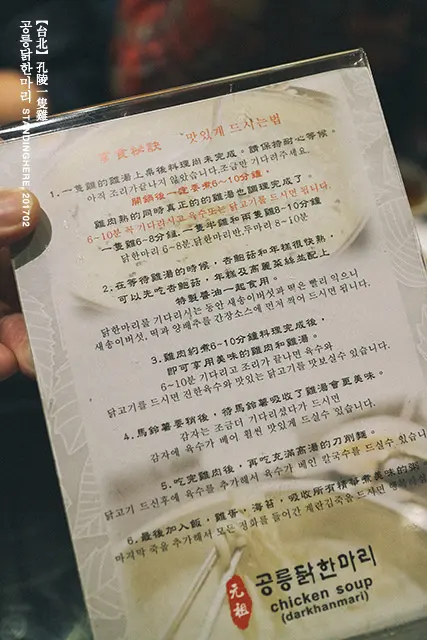 【台北】孔陵一隻雞
공릉닭한마리 STANDINGHERE, 201702
享食祕訣 맛있게 드시는법
1.一隻雞的雞湯上桌後料理尚未完成。請保持耐心等候。
아직 조리가끝나지 않았습니다.조금만 기다려주세요.
開鍋後一定要煮6~10分鐘,
雞肉熟的同時真正的的雞湯也調理完了。
6~10분 꼭 기다리시고 육수또는 닭고기를 드시면 됩니다.
一隻雞6~8分鐘.一隻半雞和兩隻雞8~10分鐘
닭한마리 6~8분.닭한마리반.두마리 8~10분
2.在等待雞湯的時候,杏鮑菇和年糕很快熟,
可以先吃杏鮑菇,年糕及高麗菜絲並配上
特製醬油一起食用。
닭한마리를 기다리시는 동안 새송이버섯과 떡은 빨리 익으니
새송이버섯, 떡과 양배추를 간장소스에 먼저 찍어 드시면 됩니다.
3.雞肉約煮6~10分鐘料理完成後,
即可享用美味的雞肉和雞湯。
6~10분 기다리고 조리가 끝나면 육수와
닭고기를 드시면 진한육수와 맛있는 닭고기를 맛보실수 있습니다.
4.馬鈴薯要稍後,待馬鈴薯吸收了雞湯會更美味。
감자는 조금더 기다리셨다가 드시면
감자에 육수가 베어 훨씬 맛있게 드실수 있습니다.
5.吃完雞肉後,再吃充滿高湯的刀削麵。
닭고기 드신후에 육수를 추가해서 육수가 베인 칼국수를 드실수 있습니
6.最後加入飯,雞蛋,海苔,吸收所有精華煮美味的粥。
마지막 죽을 추가해서 모든 정화를 들어간 계란김죽을 드시면
元祖
공릉닭한마리
chicken soup
(darkhanmari)